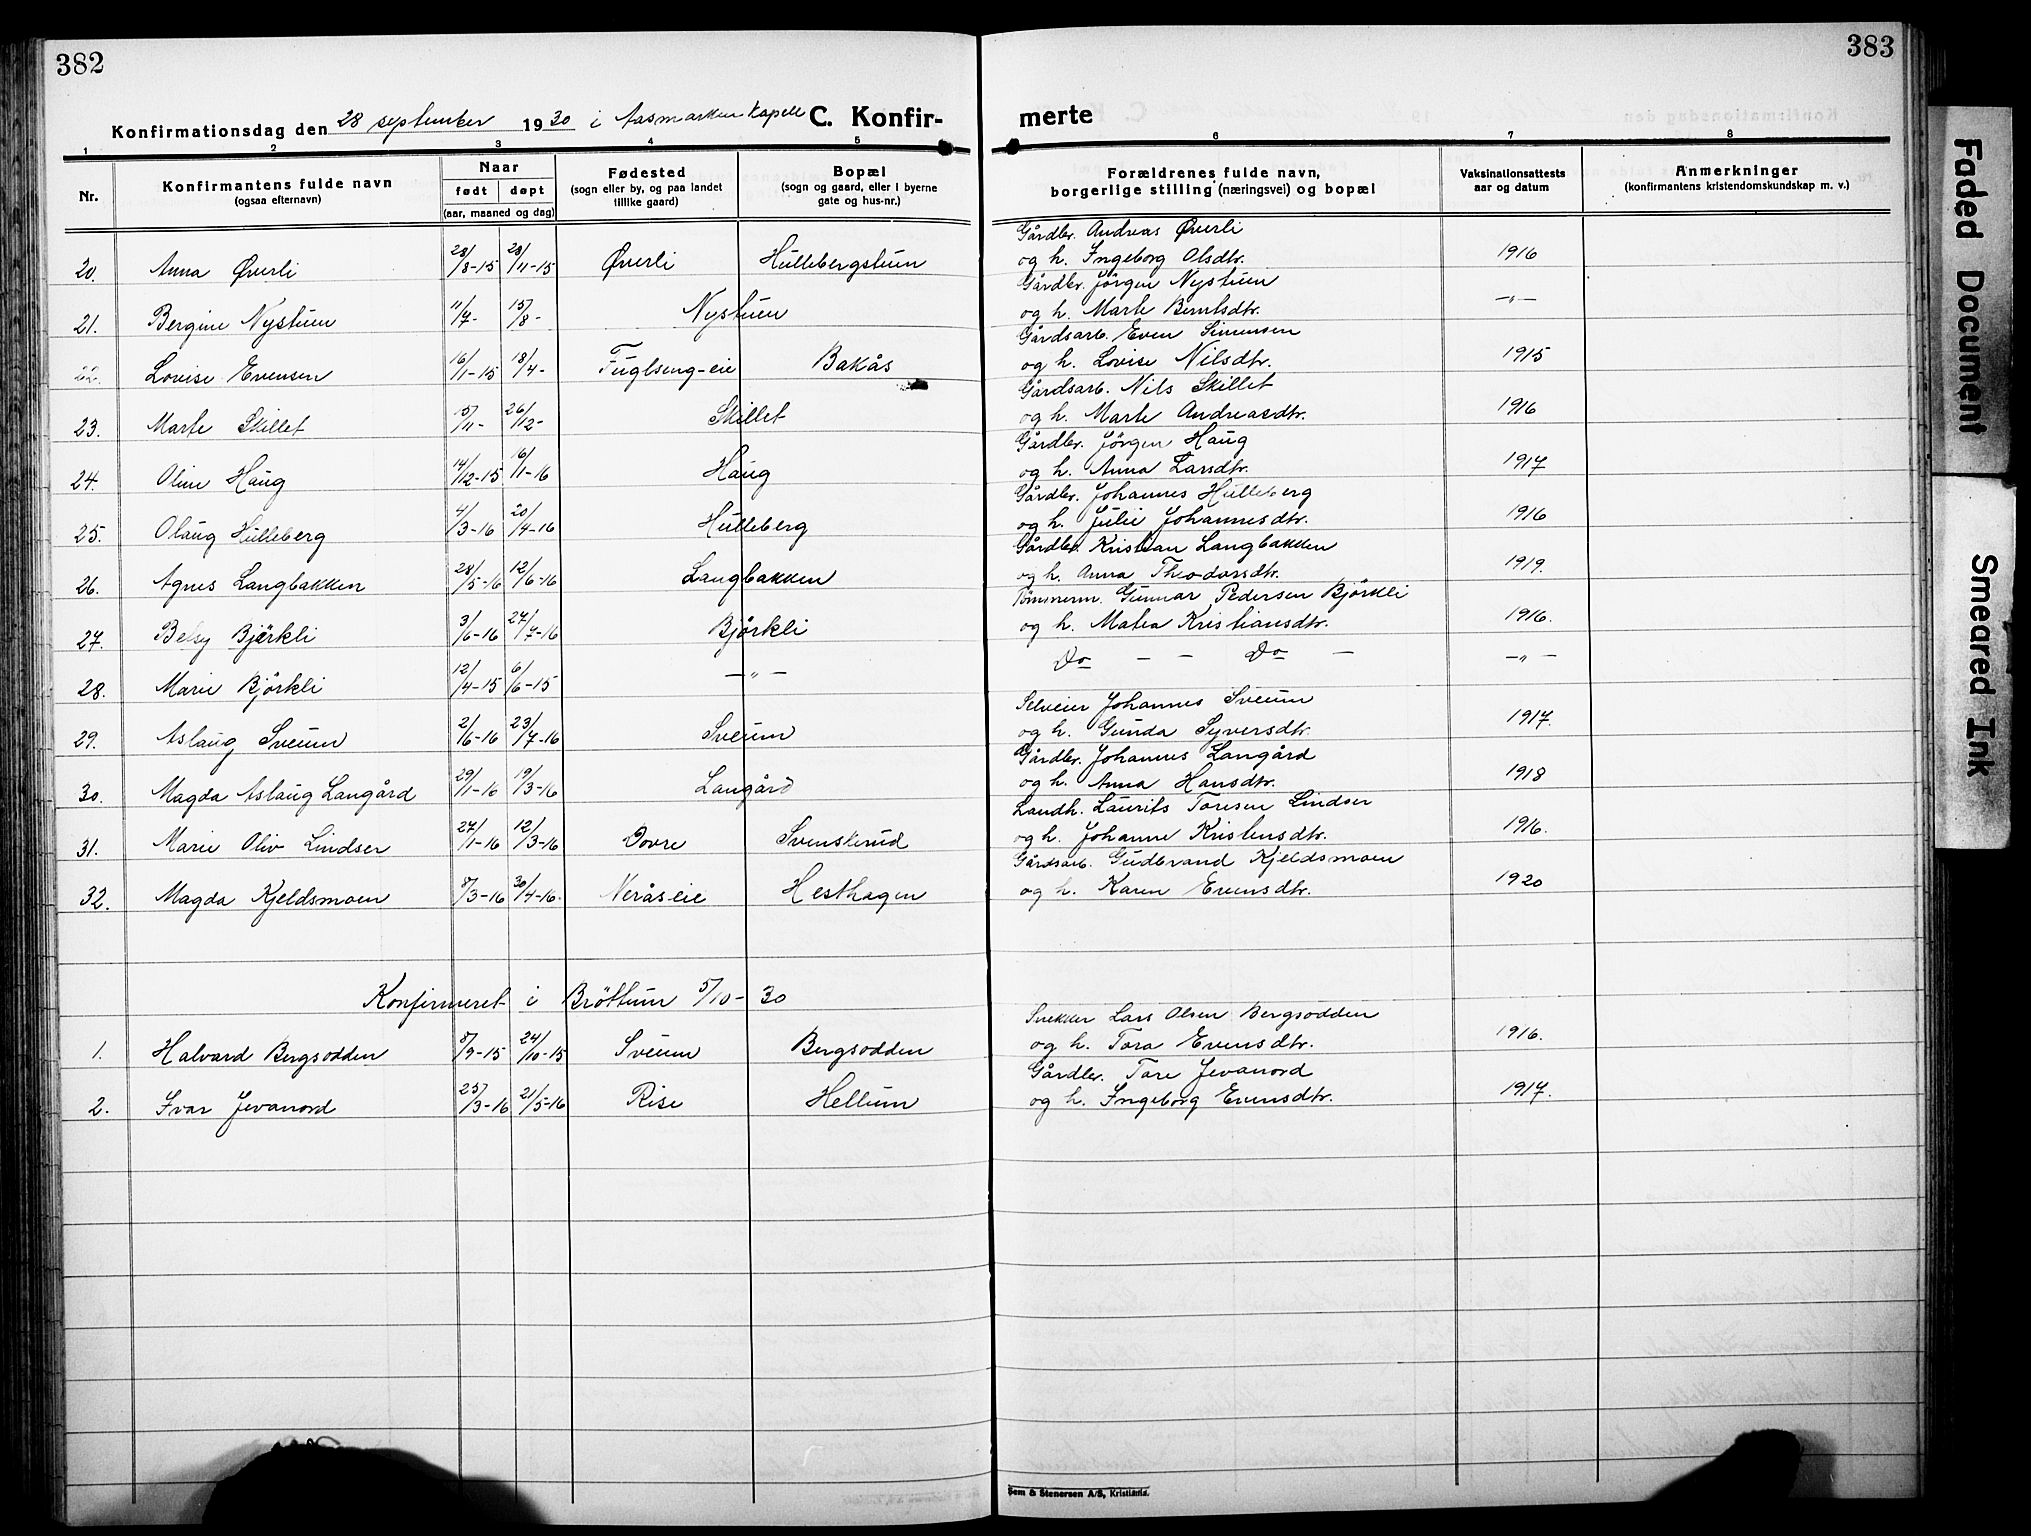 382
383
Konfirmationsdag den 28 september 1930 i Aasmarken Kapell C. Konfir-
merte
1 2 3 4 5 6 7 8
Nr.
Konfirmantens fulde navn
(ogsaa efternavn)
Naar
født døpt
(aar, maaned og dag)
Fødested
(sogn eller by, og paa landet
tillike gaard)
Bopæl
(sogn og gaard, eller i byerne
gate og hus-nr.)
Forældrenes fulde navn,
borgerlige stilling (næringsvei) og bopæl
Vaksinationsattests
aar og datum
Anmerkninger
(konfirmantens kristendomskundskap m. v.)
Gårdbr. Andreas Øverli
20. Anna Øverli 28/8-15 28/11-15 Øverli Hullebergstuen og h. Ingeborg Olsdtr. 1916
Gårdbr. Jørgen Nystuen
21. Bergine Nystuen 11/7- 15/8- Nystuen og h. Marte Berntsdtr. —"—
Gårdsarb. Even Simensen
22. Lovise Evensen 16/1-15 18/4- Fuglseng-eie Bakås og h. Lovise Nilsdtr. 1915
Gårdsarb. Nils Skillet
23. Marte Skillet 15/11- 26/12- Skillet og h. Marte Andreasdtr. 1916
Gårdbr. Jörgen Haug
24. Oline Haug 14/12-15 16/1-16 Haug og h. Anna Larsdtr. 1917
Gårdbr. Johannes Hulleberg
25. Olaug Hulleberg 4/3-16 20/4-16 Hulleberg og h. Julie Johannesdtr. 1916
Gårdbr. Kristian Langbakken
26. Agnes Langbakken 28/5-16 12/6-16 Langbakken og h. Anna Theodorsdtr. 1919.
Tömmerm. Gunnar Pedersen Björkli
27. Betsy Björkli 3/6-16 27/7-16 Björkli og h. Matea Kristiansdtr. 1916.
Do — — Do — —"—
28. Marie Björkli 12/4-15 6/6-15 —"—
Selveier Johannes Sveum
29. Aslaug Sveum 2/6-16 23/7-16 Sveum og h. Gunda Syversdtr. 1917.
Gårdbr. Johannes Langård
30. Magda Aslaug Langård 29/1-16 19/3-16 Langård og h. Anna Hansdtr. 1918
Landh. Laurits Toresen Lindser
31. Marie Oliv Lindser 27/1-16 12/3-16 Dovre Svenskerud og h. Johanne Kristensdtr. 1916.
Gårdsarb. Gudbrand Kjeldsmoen
32. Magda Kjeldsmoen 8/3-16 30/4-16. Neråseie Hesthagen og h. Karen Evensdtr. 1920
Konfirmeret i Bröttum 5/10-30
Snekker Lars Olsen Bergsodden
1. Halvard Bergsodden 8/9-15 24/10-15 Sveum Bergsodden og h. Tora Evensdtr. 1916.
Gårdbr. Tore Jevanord
2. Ivar Jevanord 25/3-16 21/5-16 Rise Hellum og h. Ingeborg Evensdtr. 1917.
Sem & Stenersen A/S, Kristiania.
Faded Document
Smeared Ink